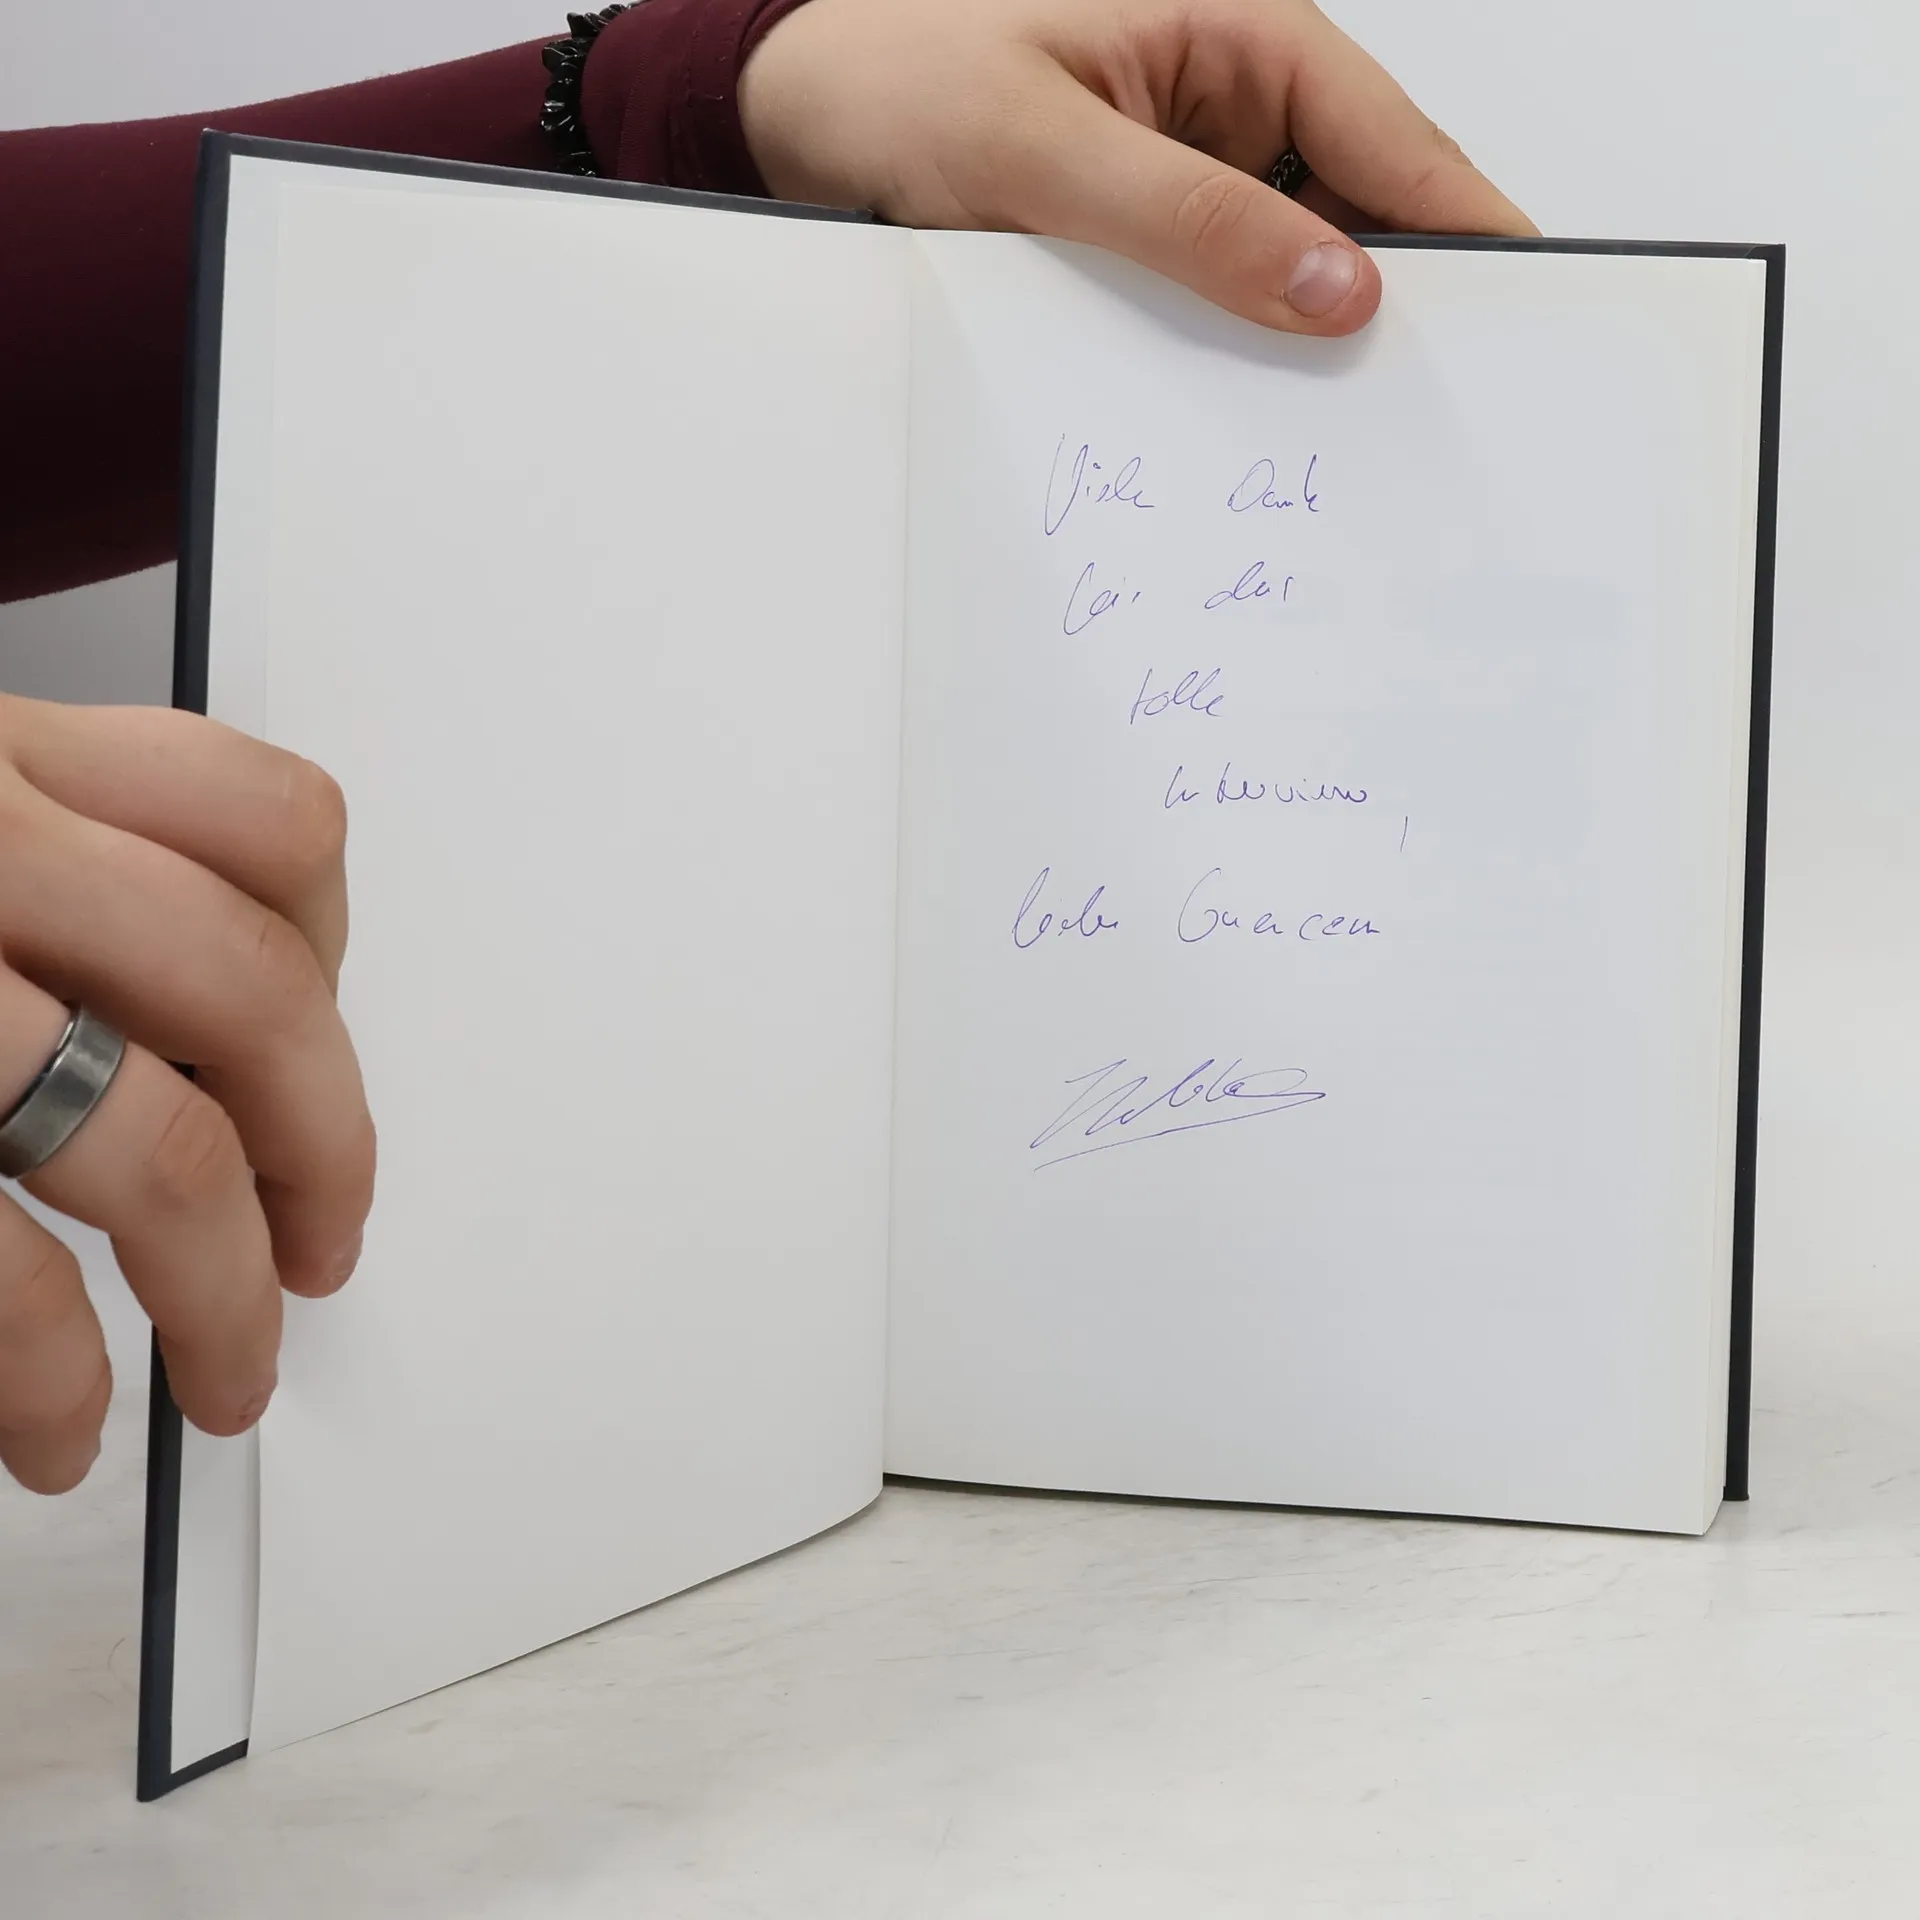 Vielen Dank
für das
tolle
Interview,
liebe